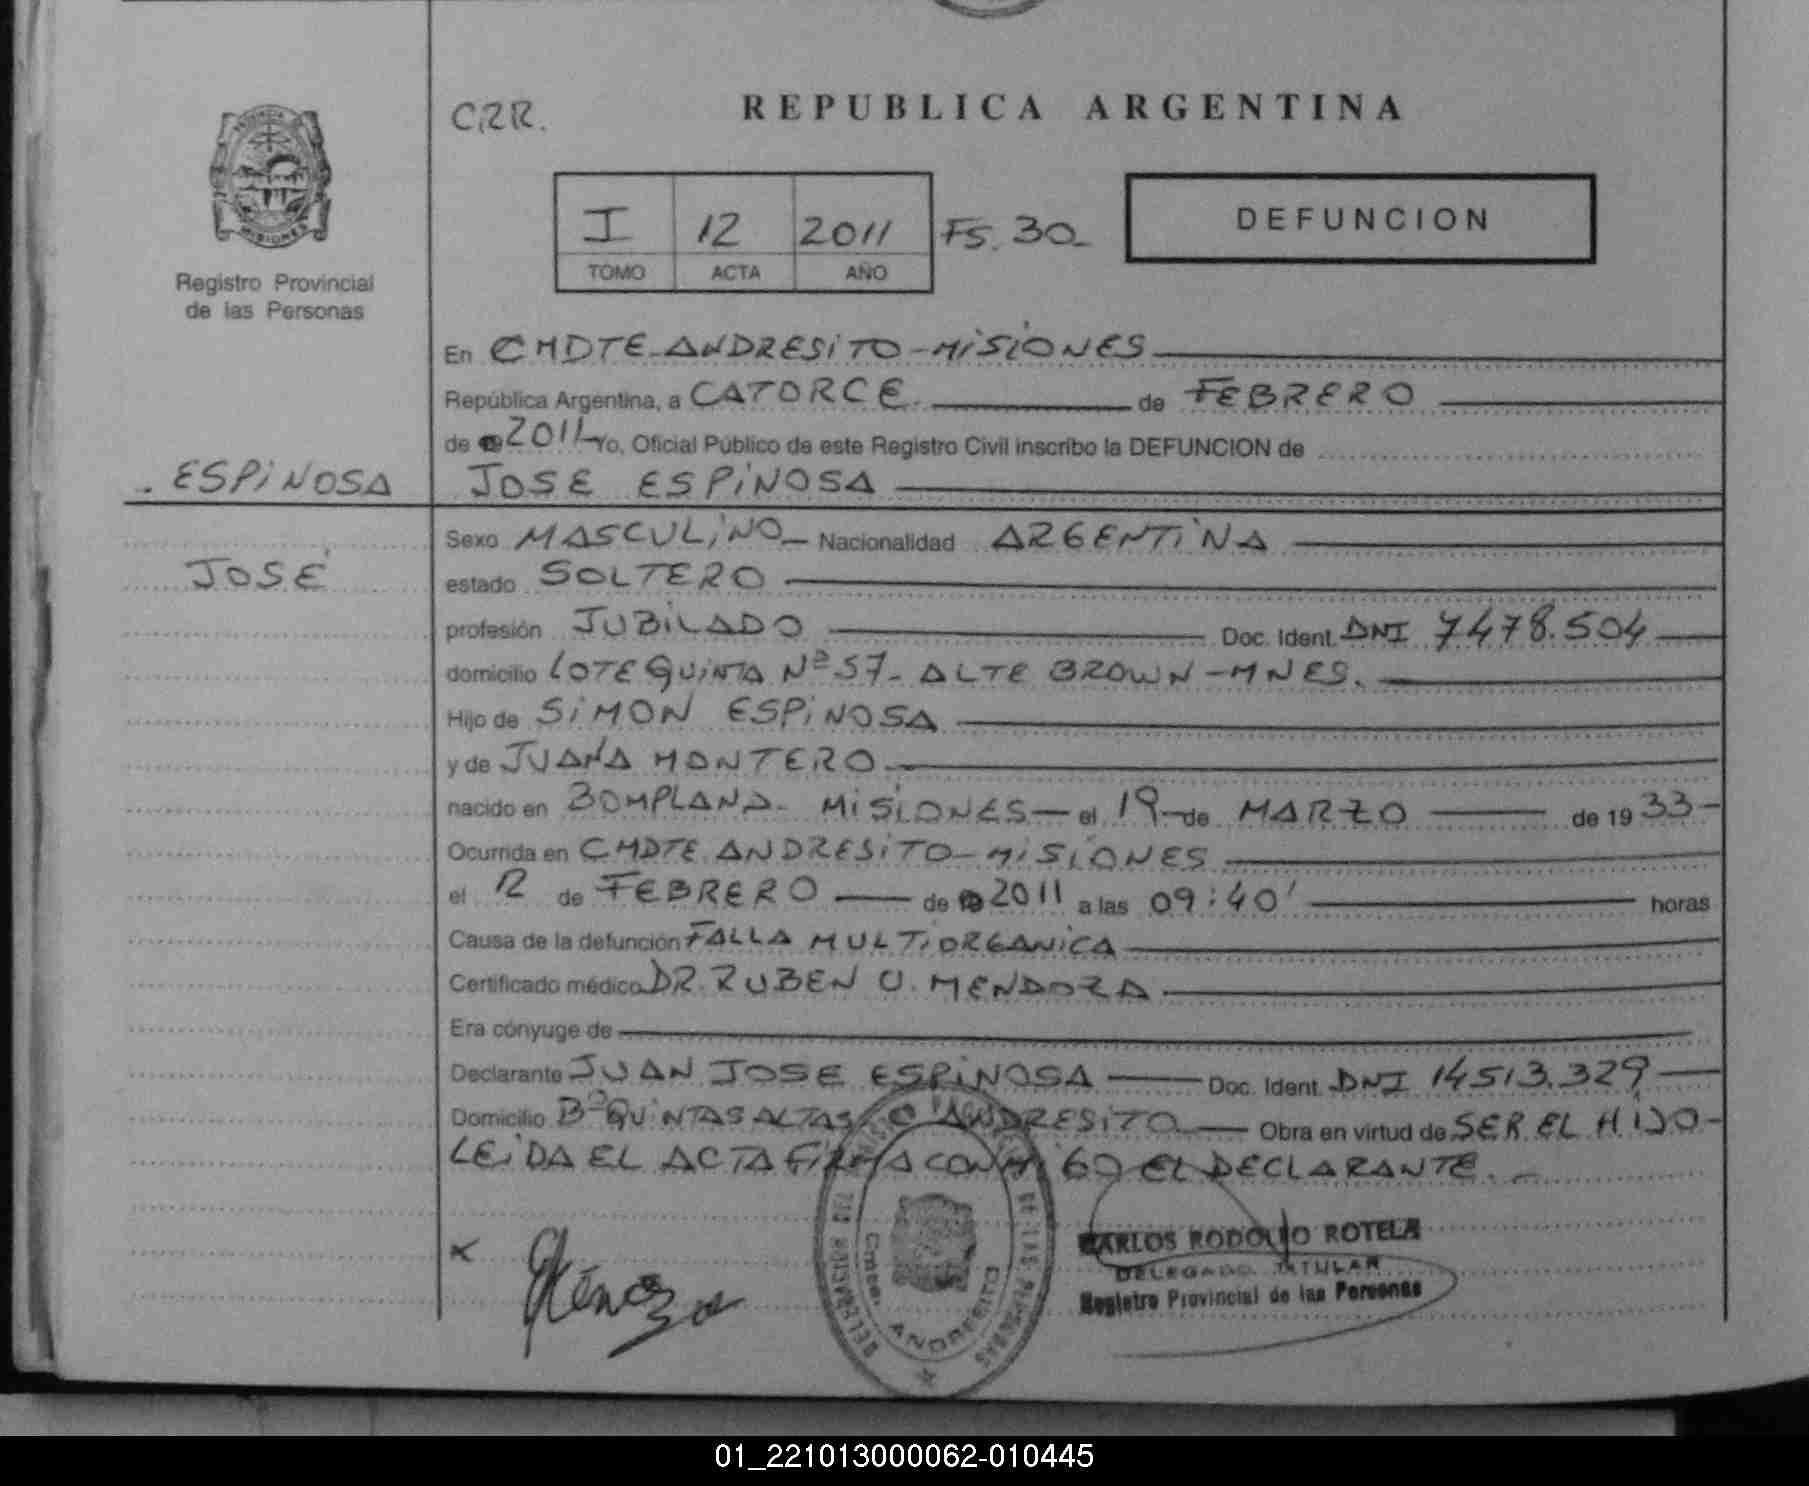 C.R.R.
REPUBLICA ARGENTINA
I 12 2011 FS. 30-
TOMO ACTA AÑO
DEFUNCION
MISIONES
Registro Provincial
de las Personas
En CMDTE ANDRESITO - MISIONES
República Argentina, a CATORCE de FEBRERO
de 2011 Yo, Oficial Público de este Registro Civil inscribo la DEFUNCION de
ESPINOSA
JOSE ESPINOSA
JOSÉ
Sexo MASCULINO Nacionalidad ARGENTINA
estado SOLTERO
profesión JUBILADO Doc. Ident. DNI 7478.504
domicilio LOTE QUINTA Nº 57- ALTE BROWN - MNES.
Hijo de SIMON ESPINOSA
y de JUANA MONTERO
nacido en BOMPLAND- MISIONES - el 19 de MARZO de 1933-
Ocurrida en CMDTE ANDRESITO - MISIONES
el 12 de FEBRERO de 2011 a las 09:40' horas
Causa de la defunción FALLA MULTIORGANICA
Certificado médico DR. RUBEN U. MENDOZA
Era cónyuge de
Declarante JUAN JOSE ESPINOSA Doc. Ident. DNI 14513.329
Domicilio Bº QUINTAS ALTAS ANDRESITO Obra en virtud de SER EL HIJO-
LEIDA EL ACTA FIRMA CONMIGO EL DECLARANTE.-
DE LAS PERSONAS
Cmte.
ANDRESITO
CARLOS RODOLFO ROTELA
DELEGADO TITULAR
Registro Provincial de las Personas
01_221013000062-010445